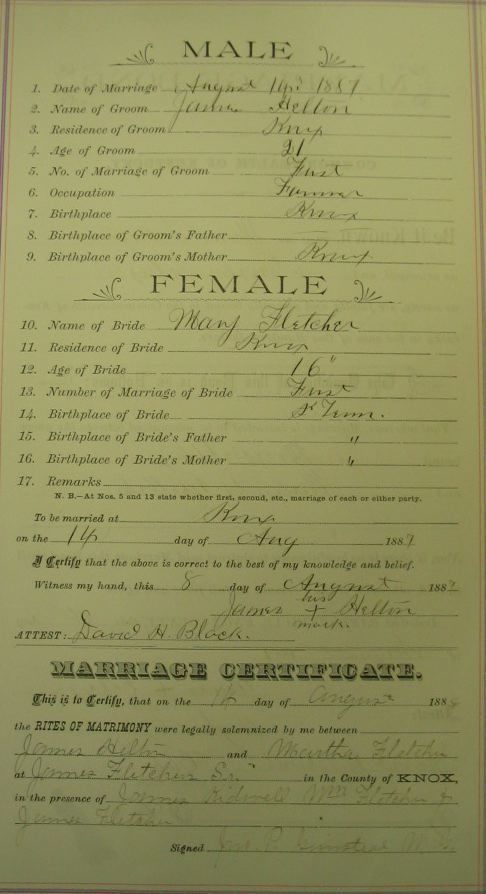 MALE
1. Date of Marriage August 14, 1887
2. Name of Groom James Helton
3. Residence of Groom Knox
4. Age of Groom 21
5. No. of Marriage of Groom First
6. Occupation Farmer
7. Birthplace Knox
8. Birthplace of Groom's Father
9. Birthplace of Groom's Mother Knox
FEMALE
10. Name of Bride Mary Fletcher
11. Residence of Bride Knox
12. Age of Bride 16"
13. Number of Marriage of Bride First
14. Birthplace of Bride Tenn.
15. Birthplace of Bride's Father "
16. Birthplace of Bride's Mother "
17. Remarks
N. B.—At Nos. 5 and 13 state whether first, second, etc., marriage of each or either party.
To be married at Knox
on the 14 day of Aug 1887
I Certify that the above is correct to the best of my knowledge and belief.
Witness my hand, this 8 day of August 188
his
James + Helton
mark.
ATTEST: David H. Black.
MARRIAGE CERTIFICATE.
This is to Certify, that on the 14 day of August 188
the RITES OF MATRIMONY were legally solemnized by me between
James Helton and Martha Fletcher
at James Fletcher Sr. in the County of KNOX,
in the presence of James Kidwell Wm Fletcher &
James Fletcher
Signed